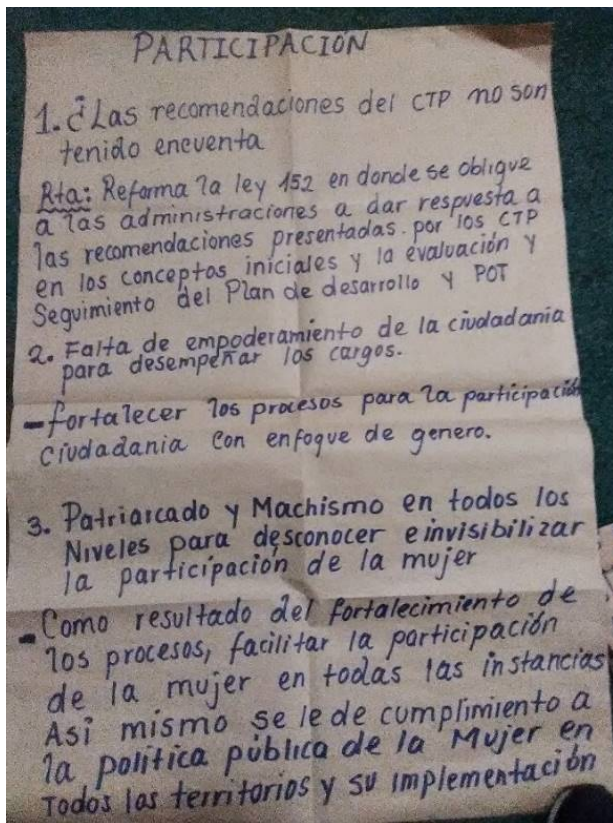 PARTICIPACIÓN
1. ¿Las recomendaciones del CTP no son
tenido encuenta
Rta: Reforma la ley 152 en donde se obligue
a las administraciones a dar respuesta a
las recomendaciones presentadas por los CTP
en los conceptos iniciales y la evaluación y
Seguimiento del Plan de desarrollo y POT
2. Falta de empoderamiento de la ciudadania
para desempeñar los cargos.
- fortalecer los procesos para la participación
ciudadania con enfoque de genero.
3. Patriarcado y Machismo en todos los
Niveles para desconocer e invisibilizar
la participación de la mujer
- Como resultado del fortalecimiento de
los procesos, facilitar la participación
de la mujer en todas las instancias
Asi mismo se le de cumplimiento a
la politica pública de la Mujer en
Todos los territorios y su implementación